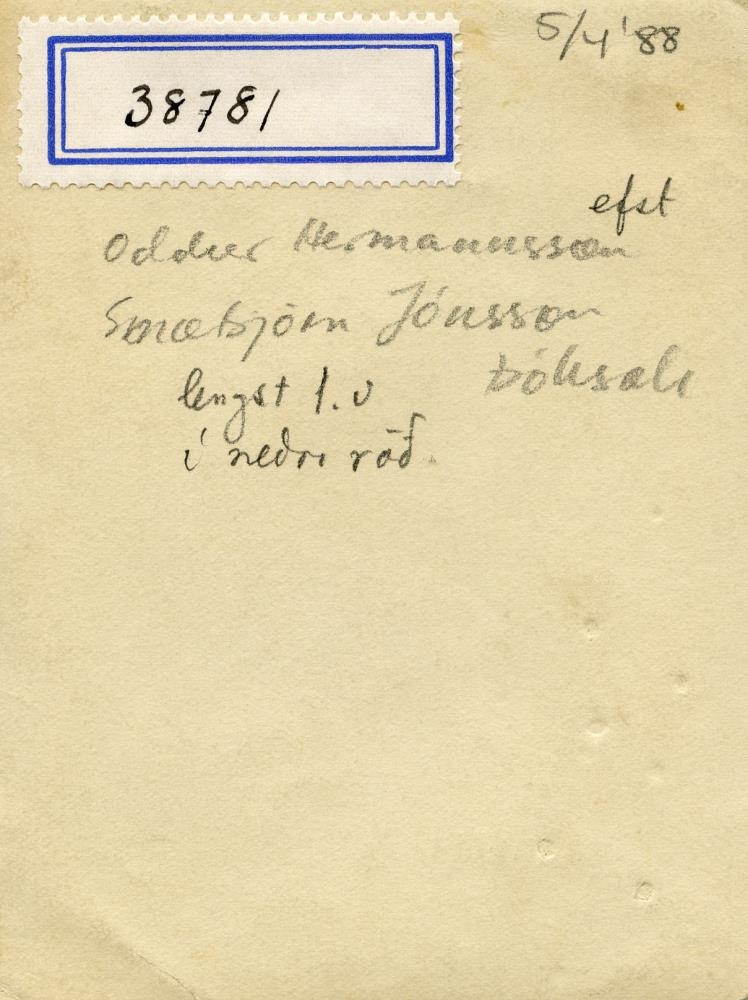 5/4 '88
38781
efst
Oddur Hermannsson
Snæbjörn Jónsson
bóksali
lengst t.v
í neðri röð.